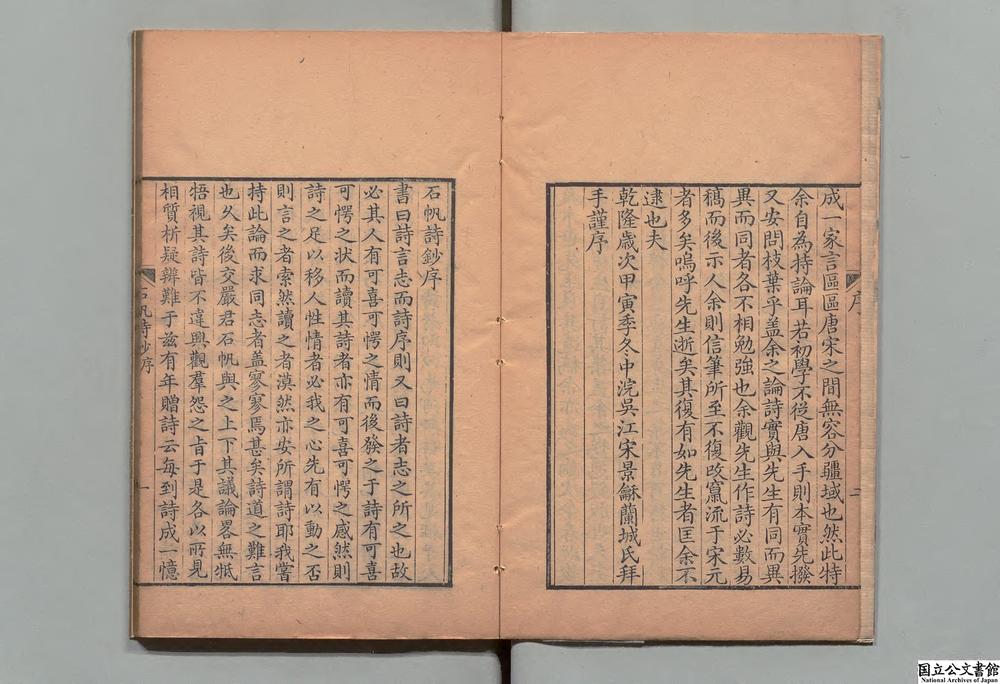 成一家言區區唐宋之間無容分疆域也然此特
余自為持論耳若初學不從唐入手則本實先撥
又安問枝葉乎盖余之論詩實與先生有同而異
異而同者各不相勉強也余觀先生作詩必數易
稿而後示人余則信筆所至不復改竄流于宋元
者多矣嗚呼先生逝矣其復有如先生者匡余不
逮也夫
乾隆歲次甲寅季冬中浣吳江宋景龢蘭城氏拜
手謹序
序
二
石帆詩鈔序
書曰詩言志而詩序則又曰詩者志之所之也故
必其人有可喜可愕之情而後發之于詩有可喜
可愕之狀而讀其詩者亦有可喜可愕之感然則
詩之足以移人性情者必我之心先有以動之否
則言之者索然讀之者漠然亦安所謂詩耶我嘗
持此論而求同志者盖寥寥焉甚矣詩道之難言
也久矣後交嚴君石帆與之上下其議論畧無牴
牾視其詩皆不違興觀羣怨之旨于是各以所見
相質析疑辨難于兹有年贈詩云每到詩成一憶
石帆詩鈔序
一
国立公文書館
National Archives of Japan